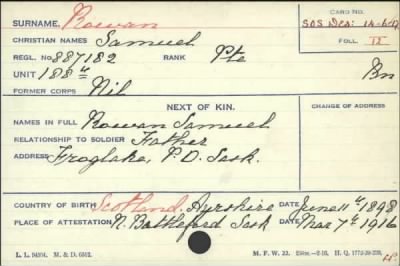 CARD NO.
SURNAME, Rowan
SOS Dec: 14-6-17
CHRISTIAN NAMES Samuel
FOLL. II
REGL. NO. 887182 RANK Pte
UNIT 188th Bn
FORMER CORPS Nil
NEXT OF KIN. CHANGE OF ADDRESS
NAMES IN FULL Rowan Samuel
RELATIONSHIP TO SOLDIER Father
ADDRESS Froglake, P.D. Sask.
COUNTRY OF BIRTH Scotland, Ayrshire DATE June 11th 1898
PLACE OF ATTESTATION N. Battleford Sask DATE Mar 7th 1916
M. F. W. 22.